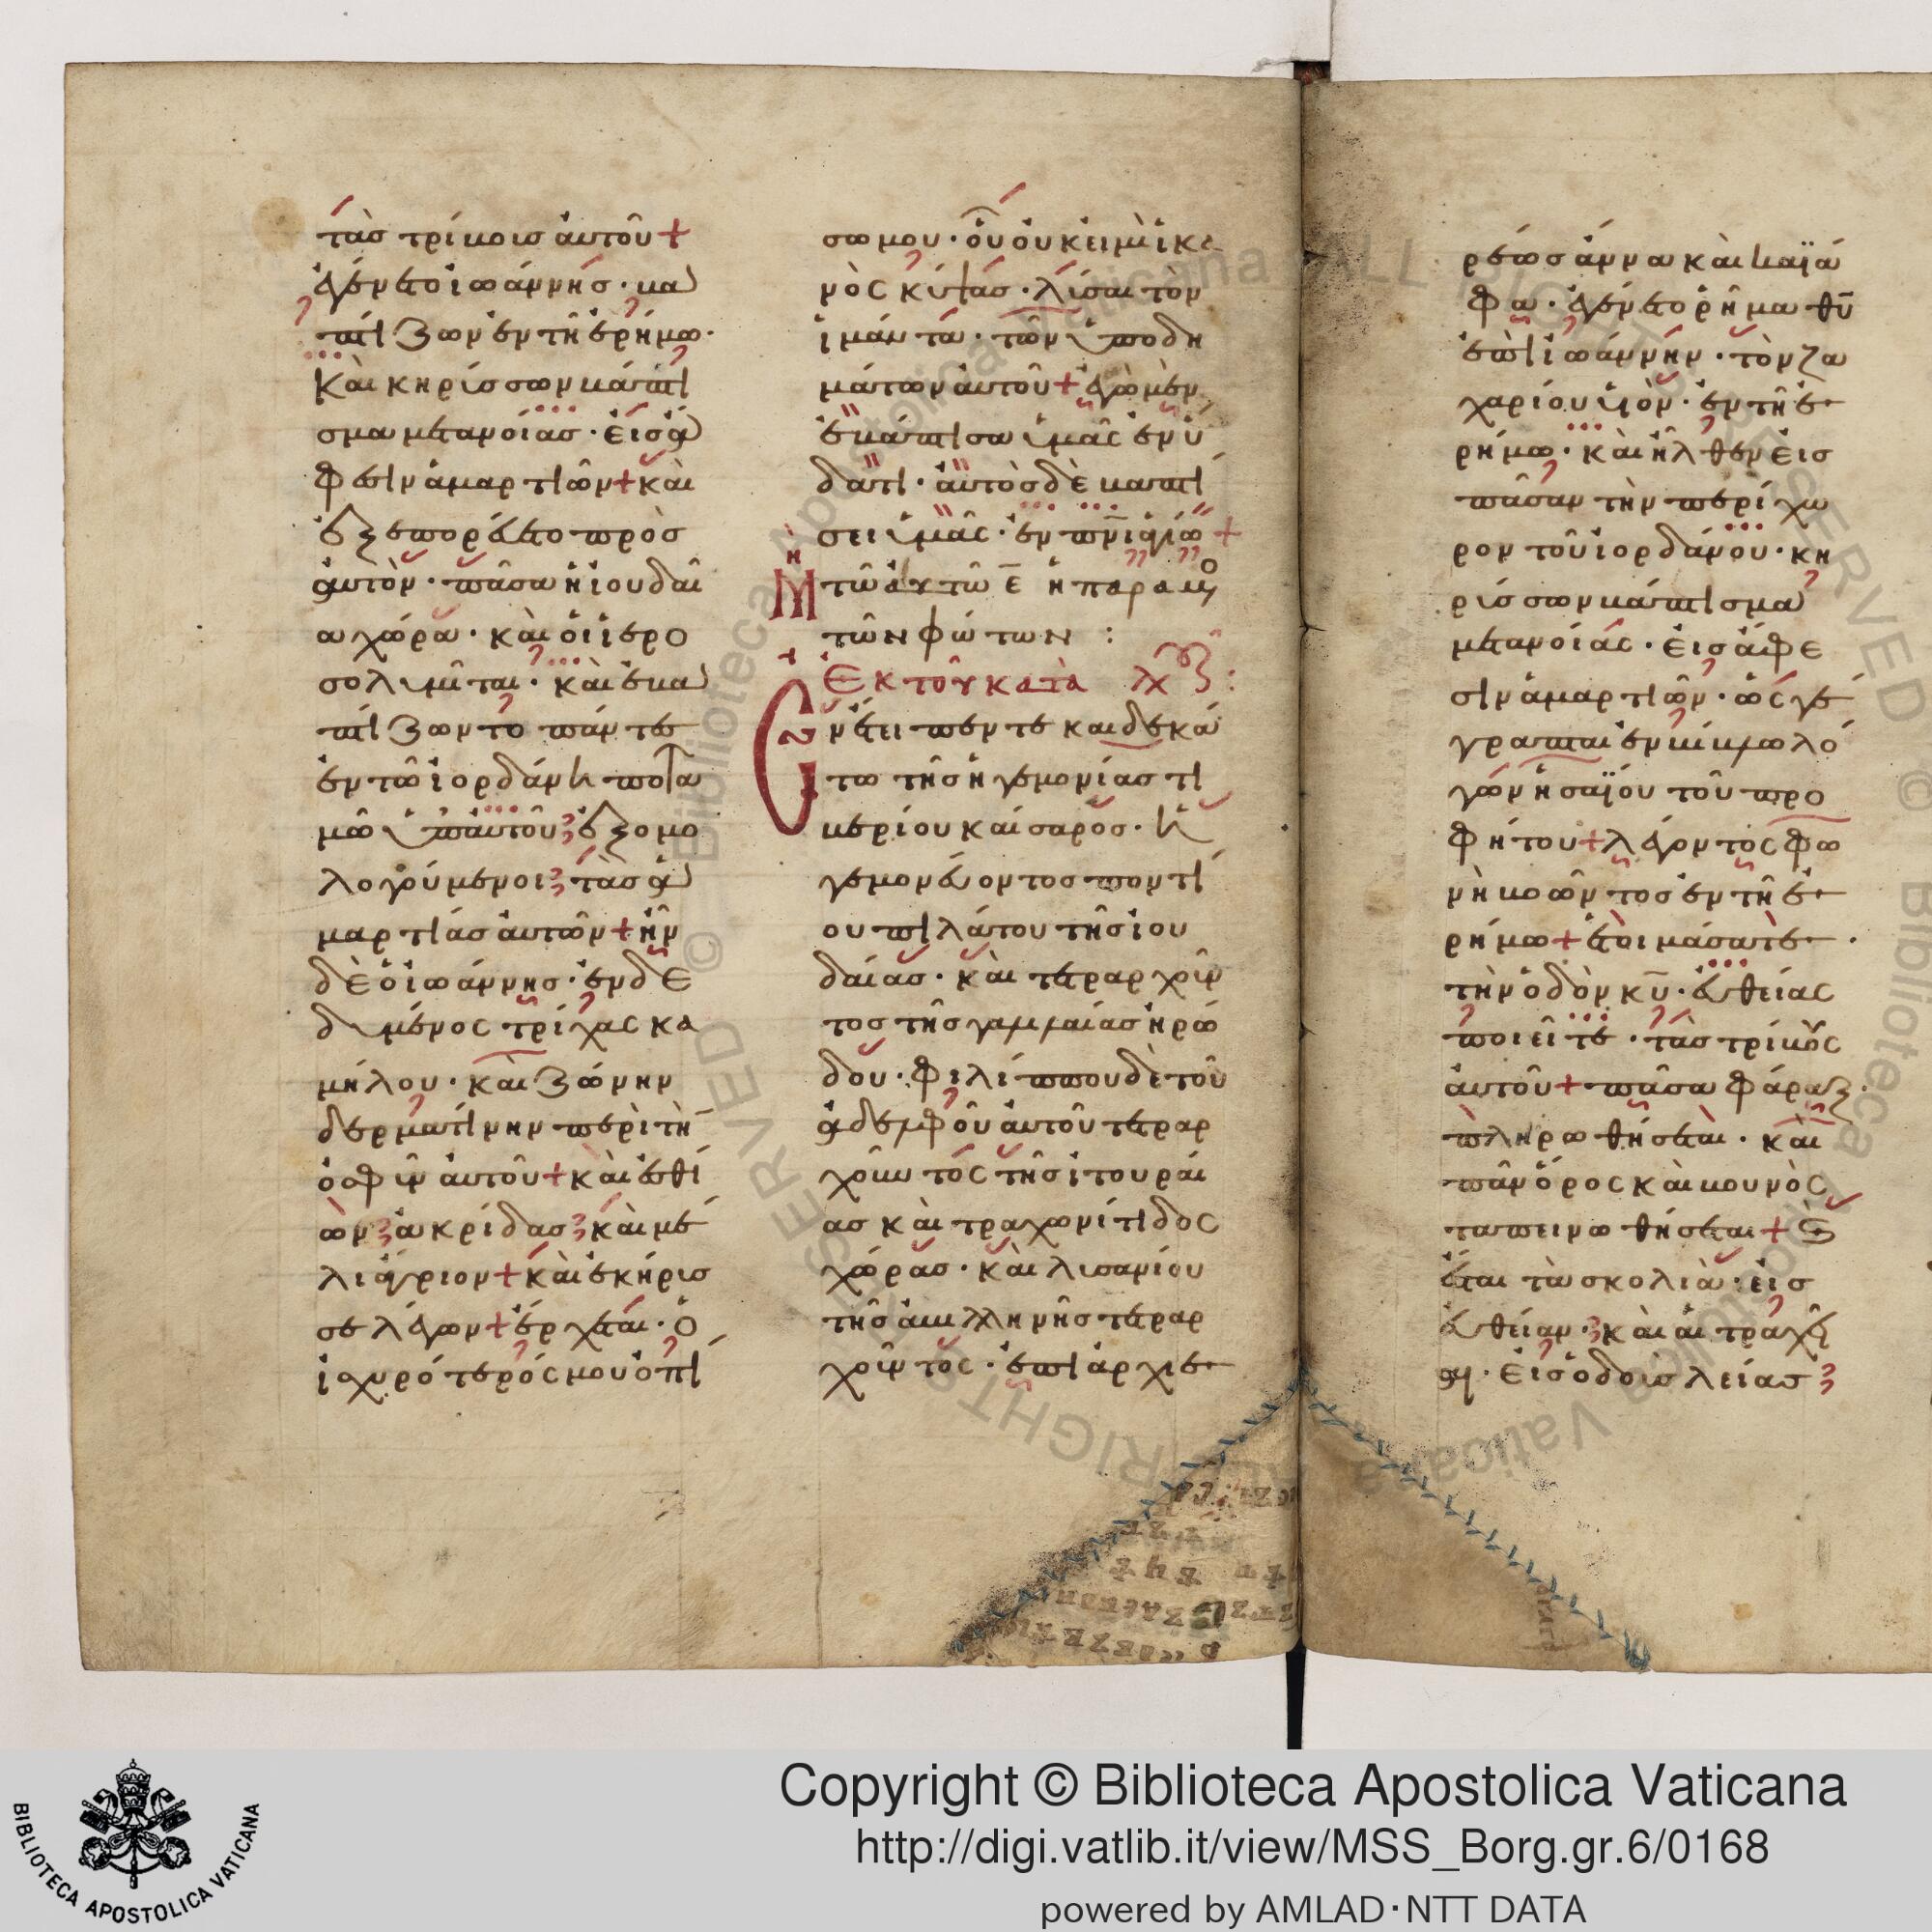 τὰσ τρίβοισ ἀυτοῦ+
ἐγένετο ἰωάννησ · βα
πτίζων ἐν τῆ ἐρήμω ·
Καὶ κηρίσσων βάπτι
σμα μετανοίασ · ἐισ ἄ
φεσιν ἁμαρτιῶν+ καὶ
ἐξεπορέυετο πρὸσ
ἀυτὸν · πᾶσα ἡ ιουδαῖ
α χώρα · καὶ ὁι ἱερο
σολυμῖται · καὶ ἐβα
πτίζωντο πάντε
ἐν τῶ ἰορδάνη ποτα
μῶ ὑπ ἀυτοῦ ἐξομο
λογούμενοι τὰσ ἁ
μαρτίασ ἀυτῶν+ ἦν
δὲ ὁ ἰωάννησ · ἐνδε
δυμένος τρίχας κα
μήλου · καὶ ζώνην
δερματίνην περὶ τὴ
ὀσφῦν ἀυτοῦ+ καὶ ἐσθί
ὼν ἀκρίδασ καὶ μέ
λι ἄγριον+ καὶ ἐκήρισ
σε λέγων+ ἔρχεται · ὁ
ἰχυρότερός μου ὀπί
σω μου · ὁῦ ὀυκ ειμὶ ἱκα
νὸς κύψας · λίσαι τὸν
ἱμάντα · τῶν ὑποδη
μάτων ἀυτοῦ+ ἐγὼ μὲν
ἐβάπτισα ὑμᾶς ἐν ὕ
δατι · ἀυτὸσ δὲ βαπτί
σει ὑμᾶς · ἐν πνι ἁγίω +
Μη τῶ ἀυτῶ ε ἡ παραμο
τῶν φώτων :
+ Ἐκ τοῦ κατὰ λχ :
Ἐν ἔτει πεντε και δεκά
τω τῆσ ἡγεμονίασ τι
βερίου καίσαρος · ἡ
γεμονέυοντοσ ποντί
ου πιλάτου τῆσ ἰου
δαίασ · καὶ τετραρχοῦν
τοσ τῆσ γαλλιλαίασ ἡρώ
δου · φιλίππου δὲ τοῦ
ἀδελφοῦ ἀυτοῦ τετραρ
χοῦντος τῆσ ἰτουραί
ασ καὶ τραχωνίτιδος
χώρασ · καὶ λισανίου
τῆσ ἀβιλληνῆσ τετραρ
χοῦντος · ἐπὶ ἀρχιε
ρέωσ ἄννα καὶ καϊά
φα · ἐγένετο ρῆμα θυ
ἐπὶ ἰωάννην · τὸν ζα
χαρίου ὑιὸν · ἐν τῆ ἐ
ρήμω · καὶ ἦλθεν ἐισ
πᾶσαν τὴν περὶχω
ρον τοῦ ἰορδάνου · κη
ρίσσων βάπτισμα
μετανοίας · ἐισ ἄφε
σιν ἁμαρτιῶν · ὡς γέ
γραπται ἐν βίβλω λό
γων ἡσαΐου τοῦ προ
φήτου+ λέγοντος φω
νὴ βοῶντοσ ἐν τῆ ἐ
ρήμω+ ἑτοιμάσατε ·
τὴν ὁδὸν κυ · ἐυθείας
ποιεῖτε · τὰσ τρίβους
ἀυτοῦ+ πᾶσα φάραξ ·
πληρωθήσεται · καὶ
πᾶν ὄρος καὶ βουνὸς
ταπεινωθήσεται+ Ἔ
σται τὰ σκολιὰ · ἐισ
ἐυθείαν · καὶ ἁι τραχεῖ
αι · ἐισ ὁδοὺσ λείασ
Copyright © Biblioteca Apostolica Vaticana
http://digi.vatlib.it/view/MSS_Borg.gr.6/0168
powered by AMLAD·NTT DATA
BIBLIOTECA APOSTOLICA VATICANA